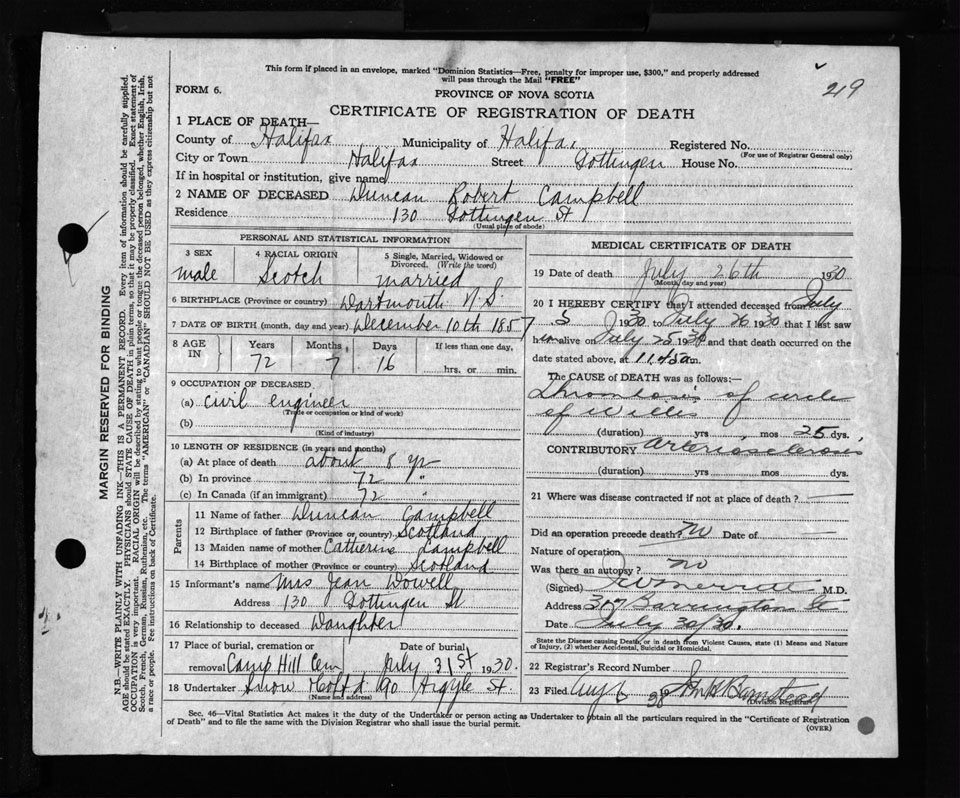 This form if placed in an envelope, marked "Dominion Statistics—Free, penalty for improper use, $300," and properly addressed
will pass through the Mail "FREE"
219
FORM 6.
PROVINCE OF NOVA SCOTIA
CERTIFICATE OF REGISTRATION OF DEATH
1 PLACE OF DEATH—
County of Halifax Municipality of Halifax Registered No.
(For use of Registrar General only)
City or Town Halifax Street Gottingen House No.
If in hospital or institution, give name
2 NAME OF DECEASED Duncan Robert Campbell
Residence 130 Gottingen St
(Usual place of abode)
PERSONAL AND STATISTICAL INFORMATION
3 SEX 4 RACIAL ORIGIN 5 Single, Married, Widowed or
Divorced. (Write the word)
male Scotch married
6 BIRTHPLACE (Province or country) Dartmouth N.S.
7 DATE OF BIRTH (month, day and year) December 10th 1857
8 AGE IN Years Months Days If less than one day,
72 7 16 hrs. or min.
9 OCCUPATION OF DECEASED
(a) civil engineer
(Trade or occupation or kind of work)
(b)
(Kind of industry)
10 LENGTH OF RESIDENCE (in years and months)
(a) At place of death about 8 yr
(b) In province 72 "
(c) In Canada (if an immigrant) 72 "
Parents
11 Name of father Duncan Campbell
12 Birthplace of father (Province or country) Scotland
13 Maiden name of mother Catherine Campbell
14 Birthplace of mother (Province or country) Scotland
15 Informant's name Mrs Jean Dowell
Address 130 Gottingen St
16 Relationship to deceased Daughter
17 Place of burial, cremation or Date of burial
removal Camp Hill Cem July 31st 1930.
18 Undertaker Snow &Co Ltd 90 Argyle St.
(Name and address)
MEDICAL CERTIFICATE OF DEATH
19 Date of death July 26th 1930
(Month, day and year)
20 I HEREBY CERTIFY that I attended deceased from July
5 1930 to July 26 1930 that I last saw
him alive July 25 1930 and that death occurred on the
date stated above, at 11.45 a m.
The CAUSE OF DEATH was as follows:—
Thrombosis of circle
of Willis
(duration) yrs mos 25 dys.
CONTRIBUTORY arteriosclerosis
(duration) yrs. mos dys.
21 Where was disease contracted if not at place of death? —
Did an operation precede death? No Date of —
Nature of operation
Was there an autopsy? no
(Signed) M.D.
Address 317 Barrington St
Date July 30/30.
State the Disease causing Death, or in death from Violent Causes, state (1) Means and Nature
of Injury, (2) whether Accidental, Suicidal or Homicidal.
22 Registrar's Record Number
23 Filed Aug 6 John H Barnstead
(Division Registrar)
Sec. 46—Vital Statistics Act makes it the duty of the Undertaker or person acting as Undertaker to obtain all the particulars required in the "Certificate of Registration
of Death" and to file the same with the Division Registrar who shall issue the burial permit.
(OVER)
MARGIN RESERVED FOR BINDING
N.B.—WRITE PLAINLY WITH UNFADING INK—THIS IS A PERMANENT RECORD. Every item of information should be carefully supplied.
AGE should be stated EXACTLY. PHYSICIANS should STATE CAUSE OF DEATH in plain terms, so that it may be properly classified. Exact statement of
OCCUPATION is very important. RACIAL ORIGIN will be described by stating to what people or tongue the deceased person belonged, whether English, Irish,
Scotch, French, German, Russian, Ruthenian, etc. The terms "AMERICAN" or "CANADIAN" SHOULD NOT BE USED as they express citizenship but not
a race or people. See instructions on back of Certificate.